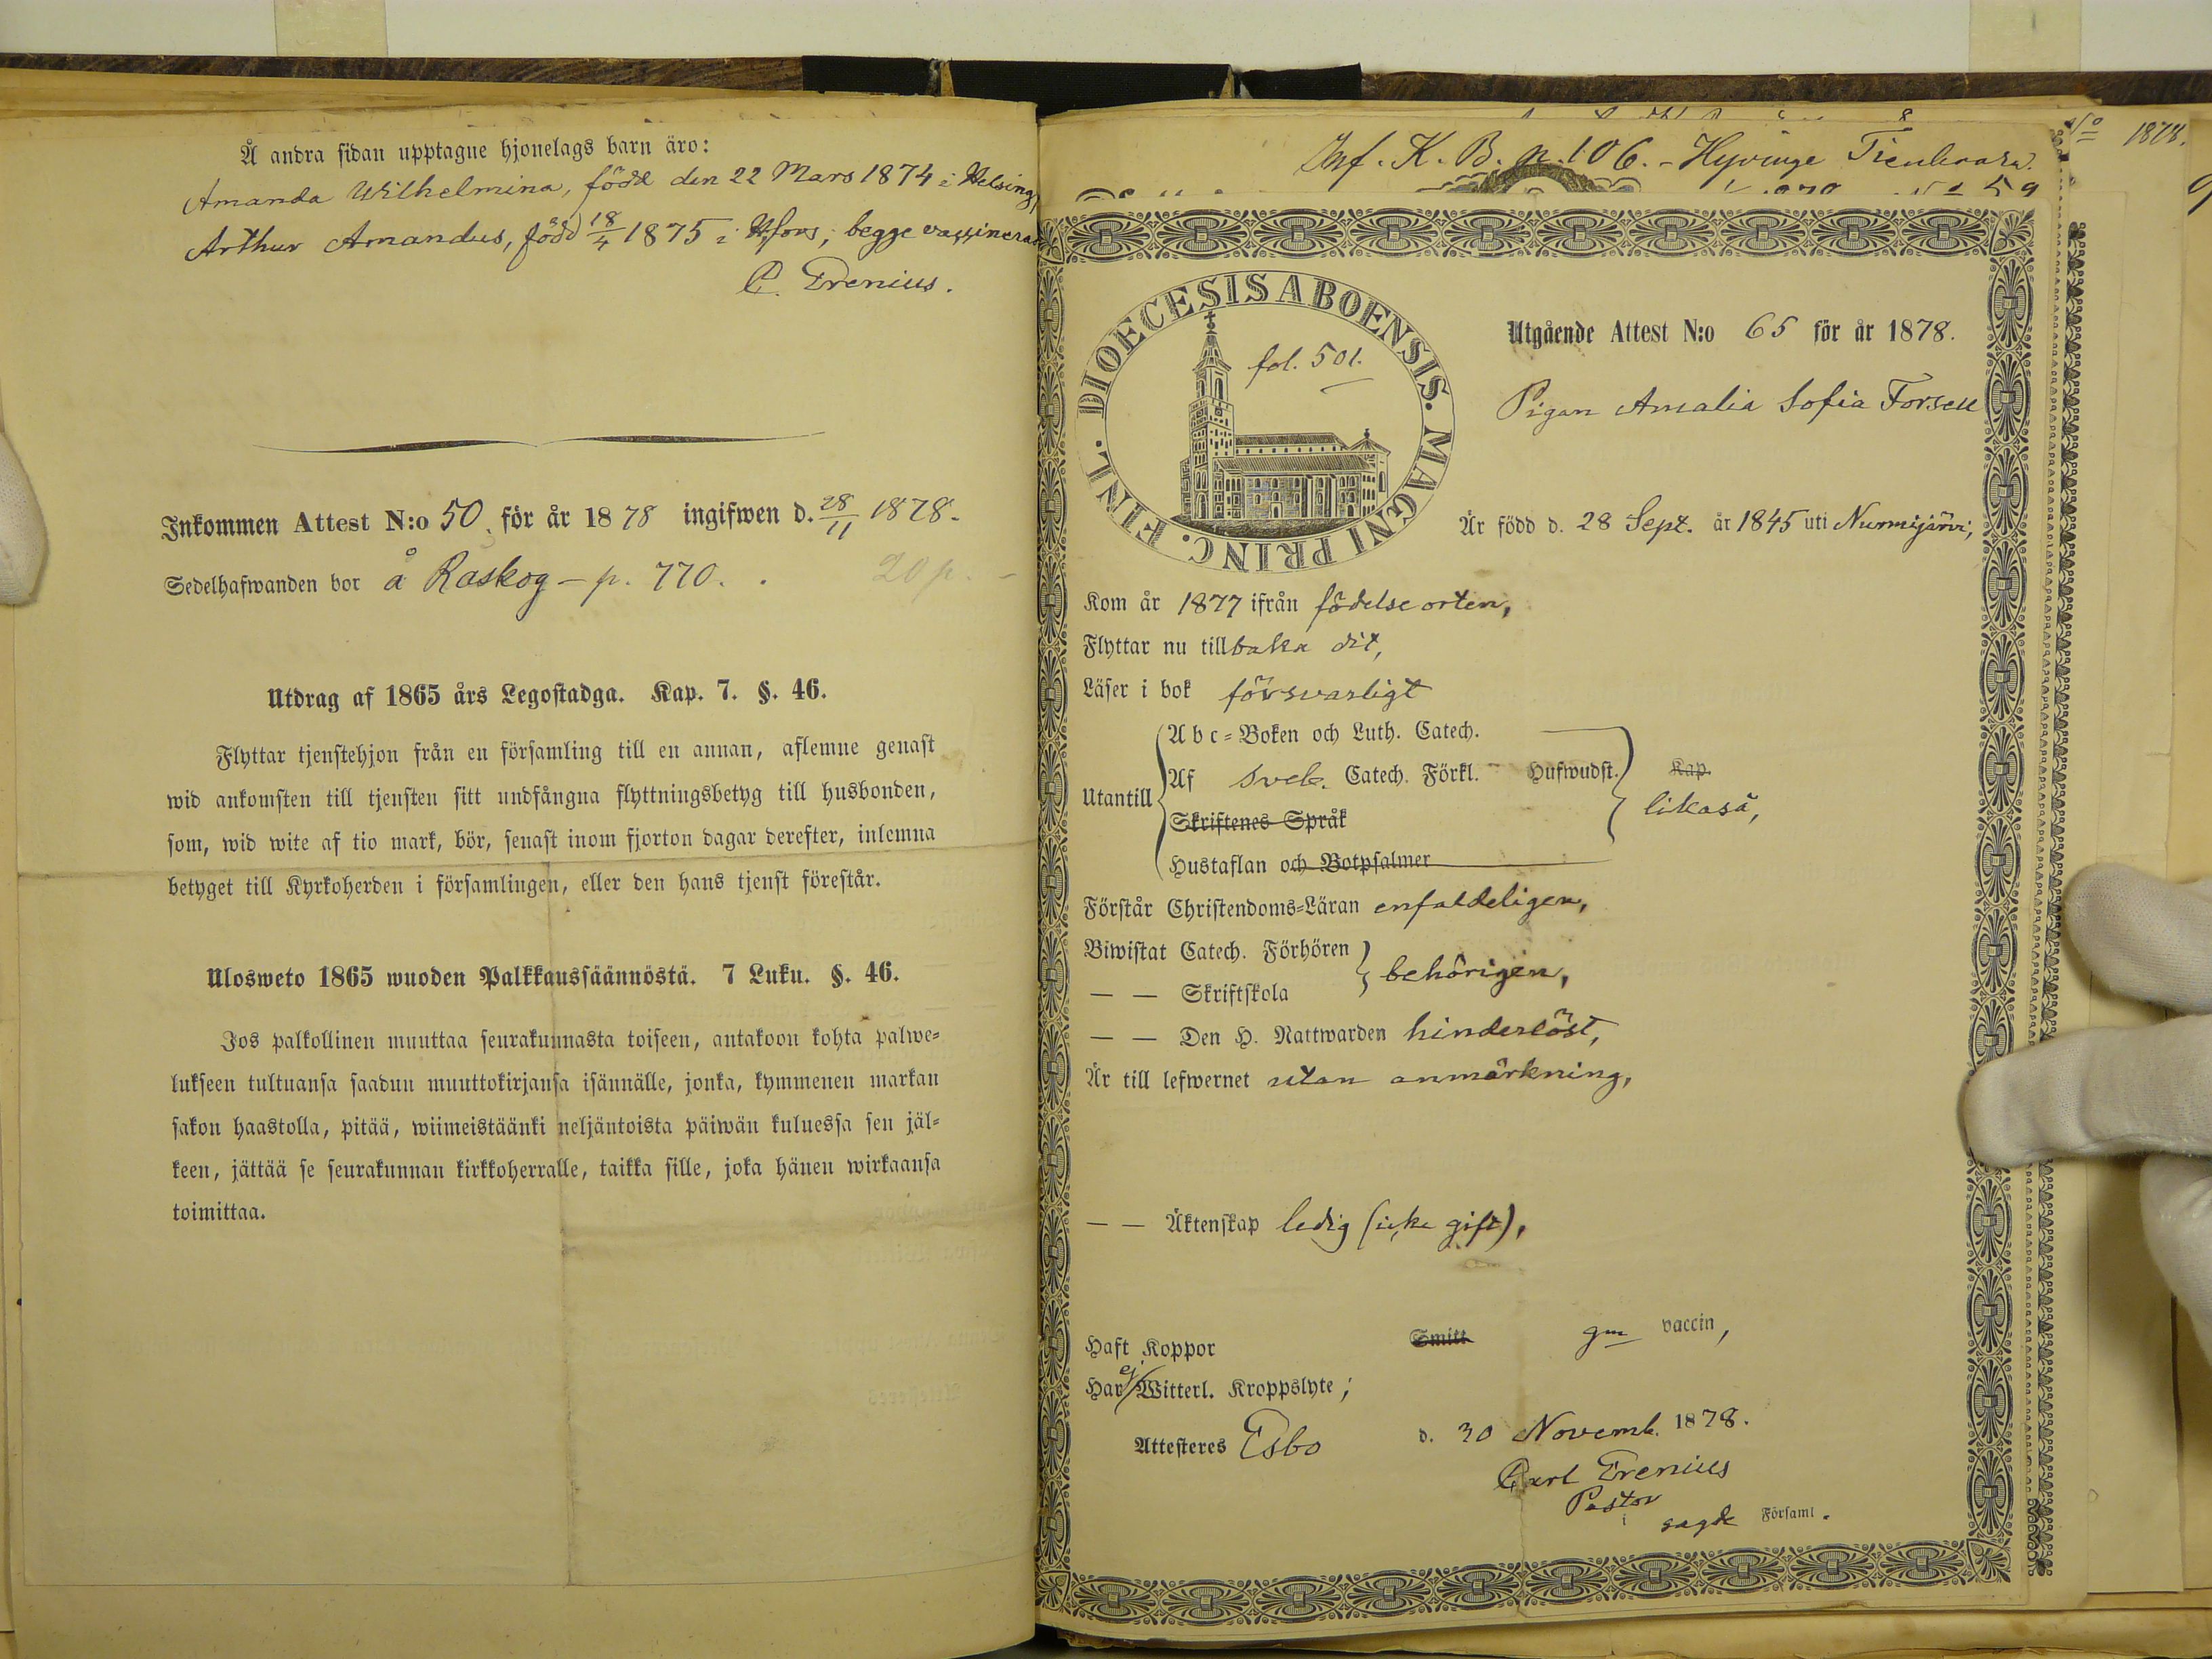 Å andra sidan upptagne hjonelags barn äro:
Amanda Wilhelmina, född den 22 Mars 1874 i Helsing
Arthur Amandus, född 18/4 1875 i Hfors; begge
C. Erenius.
Inkommen Attest N:o 50. för år 1878 ingifwen d. 28/11 1878.
Sedelhafwanden bor å Raskog – p. 770.
20 p.
Utdrag af 1865 års Legostadga. Kap. 7. §. 46.
Flyttar tjenstehjon från en församling till en annan, aflemne genast
wid ankomsten till tjensten sitt undfångna flyttningsbetyg till husbonden,
som, wid wite af tio mark, bör, senast inom fjorton dagar derefter, inlemna
betyget till Kyrkoherden i församlingen, eller den hans tjenst förestår.
Ulosweto 1865 wuoden Palkkaussäännöstä. 7 Luku. §. 46.
Jos palkollinen muuttaa seurakunnasta toiseen, antakoon kohta palwe-
lukseen tultuansa saadun muuttokirjansa isännälle, jonka, kymmenen markan
sakon haastolla, pitää, wiimeistäänki neljäntoista päiwän kuluessa sen jäl-
keen, jättää se seurakunnan kirkkoherralle, taikka sille, joka hänen wirkaansa
toimittaa.
Inf. K. B. p. 106. – Hyvinge
59
No 1878.
DIOECESIS ABOENSIS. MAGNI PRINC. FINL.
fol. 501.
Utgående Attest N:o 65 för år 1878.
Pigan Amalia Sofia Forsell
Är född d. 28 Sept. år 1845 uti Nurmijärvi,
Kom år 1877 ifrån födelse orten,
Flyttar nu tillbaka dit,
Läser i bok försvarligt
Utantill
Abc-Boken och Luth. Catech.
Af sveb. Catech. Förkl. Hufwudst. Kap.
Skriftenes Språk
likaså,
Hustaflan och Botpsalmer
Förstår Christendoms-Läran enfaldeligen,
Biwistat Catech. Förhören
behörigen,
— — Skriftskola
— — Den H. Nattwarden hinderlöst,
Är till lefwernet utan anmärkning,
— — Äktenskap ledig (icke gift),
Haft Koppor Smitt gm vaccin,
Har ej Witterl. Kroppslyte;
Attesteres Esbo d. 30 Novemb. 1878.
Carl Erenius
Pastor
i sagde Församl.